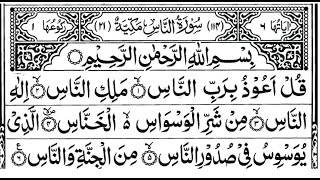 اٰيَاتُهَا ٦ (۱۱۴) سُوْرَةُ النَّاسِ مَكِّيَّةٌ (۲۱) رُكُوْعُهَا ١
بِسْمِ اللّٰهِ الرَّحْمٰنِ الرَّحِيْمِ
قُلْ اَعُوْذُ بِرَبِّ النَّاسِ ۙ۝۱ مَلِكِ النَّاسِ ۙ۝۲ اِلٰهِ
النَّاسِ ۙ۝۳ مِنْ شَرِّ الْوَسْوَاسِ ۙ۬ الْخَنَّاسِ ۪ۙ۝۴ الَّذِيْ
يُوَسْوِسُ فِيْ صُدُوْرِ النَّاسِ ۙ۝۵ مِنَ الْجِنَّةِ وَالنَّاسِ ۝۶